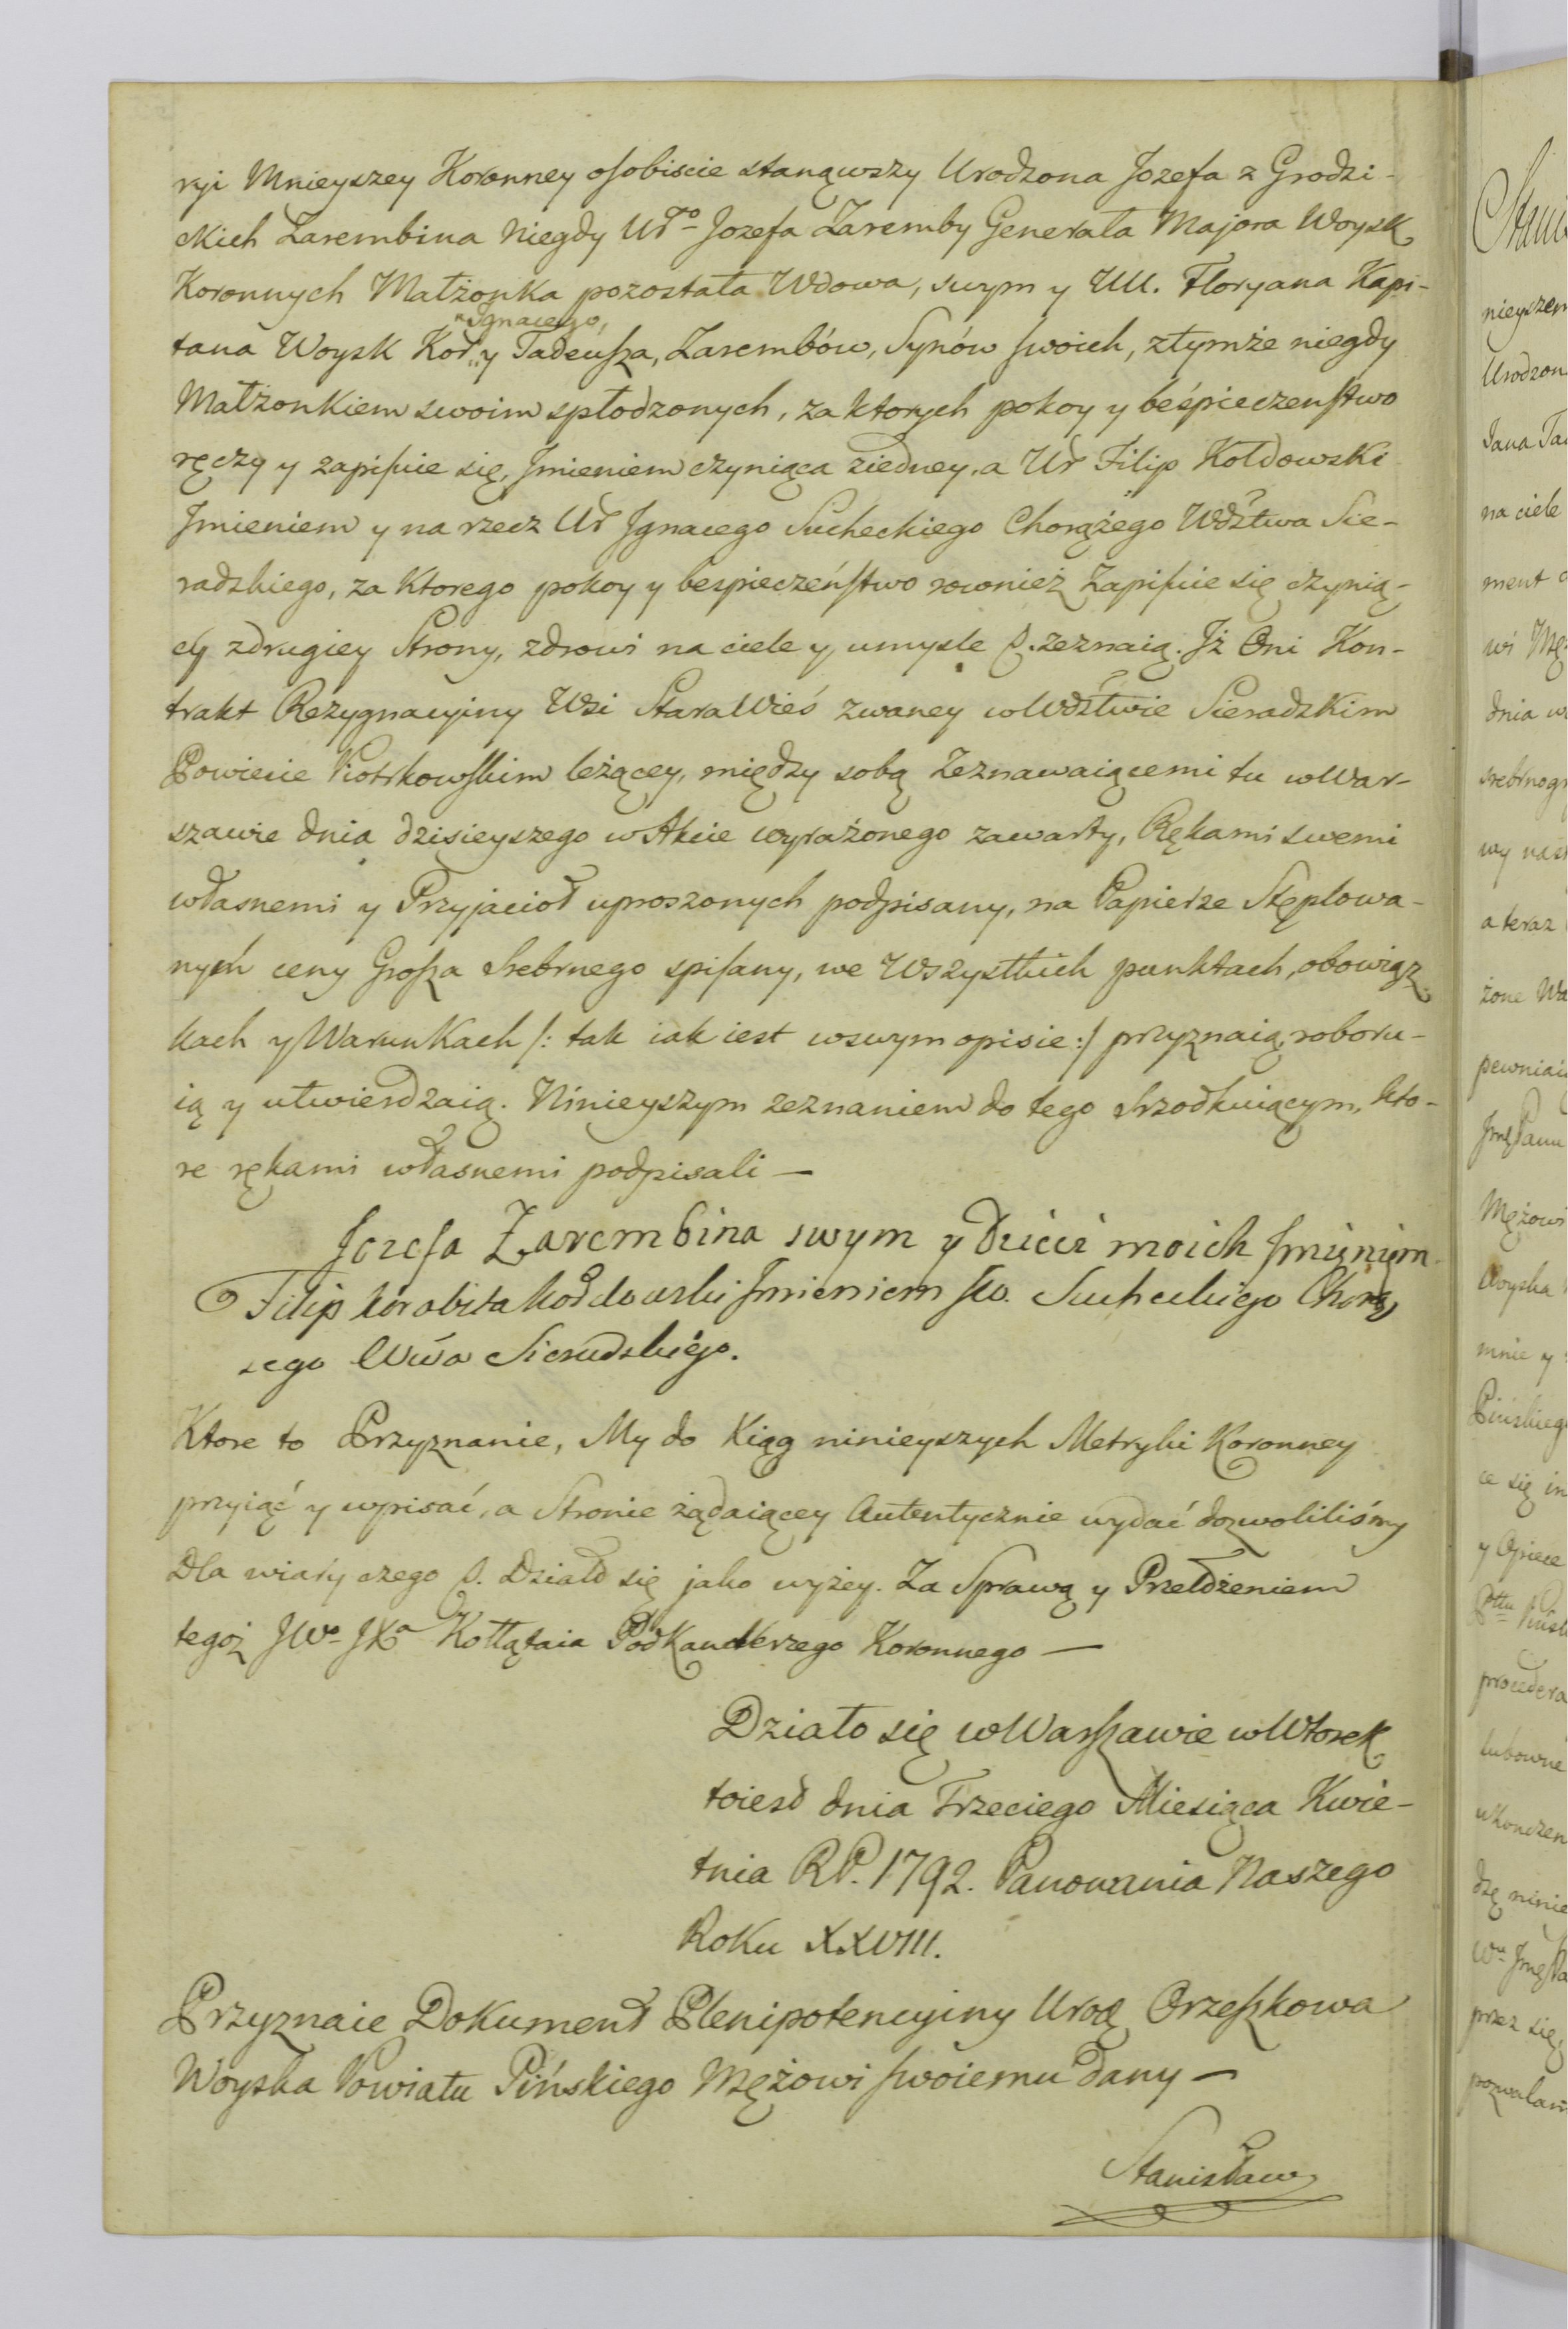 ryi Mnieyszey Koronney osobiscie stanąwszy Urodzona Jozefa z Grodzi-
ckich Zarembina niegdy Urº Jozefa Zaremby Generała Majora Woysk
Koronnych Małżonka pozostała Wdowa, swym y UU. Floryana Kapi-
Ignacego,
tana Woysk Kor y Tadeusza, Zarembów, Synów swoich, ztymże niegdy
Małżonkiem swoim spłodzonych, za ktorych pokoy y beśpieczenstwo
ręczy y zapisuie się, Jmieniem czyniąca ziedney, a Ur Filip Kołdowski
Jmieniem y na rzecz Ur Jgnacego Sucheckiego Chorążego Wdztwa Sie-
radzkiego, za Ktorego pokoy y bespieczeństwo rownież Zapisuie się czynią-
cy zdrugiey Strony, zdrowi na ciele y umysle &. zeznaią. Jż Oni Kon-
trakt Rezygnacyiny Wsi Stara Wieś zwaney w Wdztwie Sieradzkim
Powiecie Piotrkowskim leżącey, między sobą Zeznawaiącemi tu w War-
szawie dnia dzisieyszego w Akcie wyrażonego zawarty, Rękami swemi
własnemi y Przyjacioł uproszonych podpisany, na Papierze Stęplowa-
nym ceny Grosza Srebrnego spisany, we Wszystkich punktach, obowiąz
kach y Warunkach /: tak iak iest w swym opisie :/ przyznaią, roboru-
ią y utwierdzaią. Ninieyszym zeznaniem do tego srzodkuiącym, kto-
re rękami własnemi podpisali —
Jozefa Zarembina swym y dzieci moich Jmięnięm
Filip Korabita Kołdowski Jmieniem Jw. Sucheckiego Chorą
zego Wwa Sieradzkiego.
Ktore to Przyznanie, My do Xiąg ninieyszych Metryki Koronney
przyiąć y wpisać, a Stronie żądaiącey Autentycznie wydać dozwoliliśmy
Dla wiary czego &. Działo się jako wyżey. Za Sprawą y Przełożeniem
tegoż JWº JXª Kołłątaia Podkanclerzego Koronnego —
Działo się w Warszawie w Wtorek
toiesd dnia Trzeciego Miesiąca Kwie-
tnia RP. 1792. Panowania Naszego
Roku XXVIII.
Przyznaie Dokument Plenipotencyiny Urod Orzeszkowa
Woyska Powiatu Pińskiego Mężowi swoiemu dany —
Stanisław
nieyszem
Urodzon
na ciele
ment
dnia w
a teraz
żone
Mężowi
Woyska
mnie y
ce się in
y Opiece
przez się,